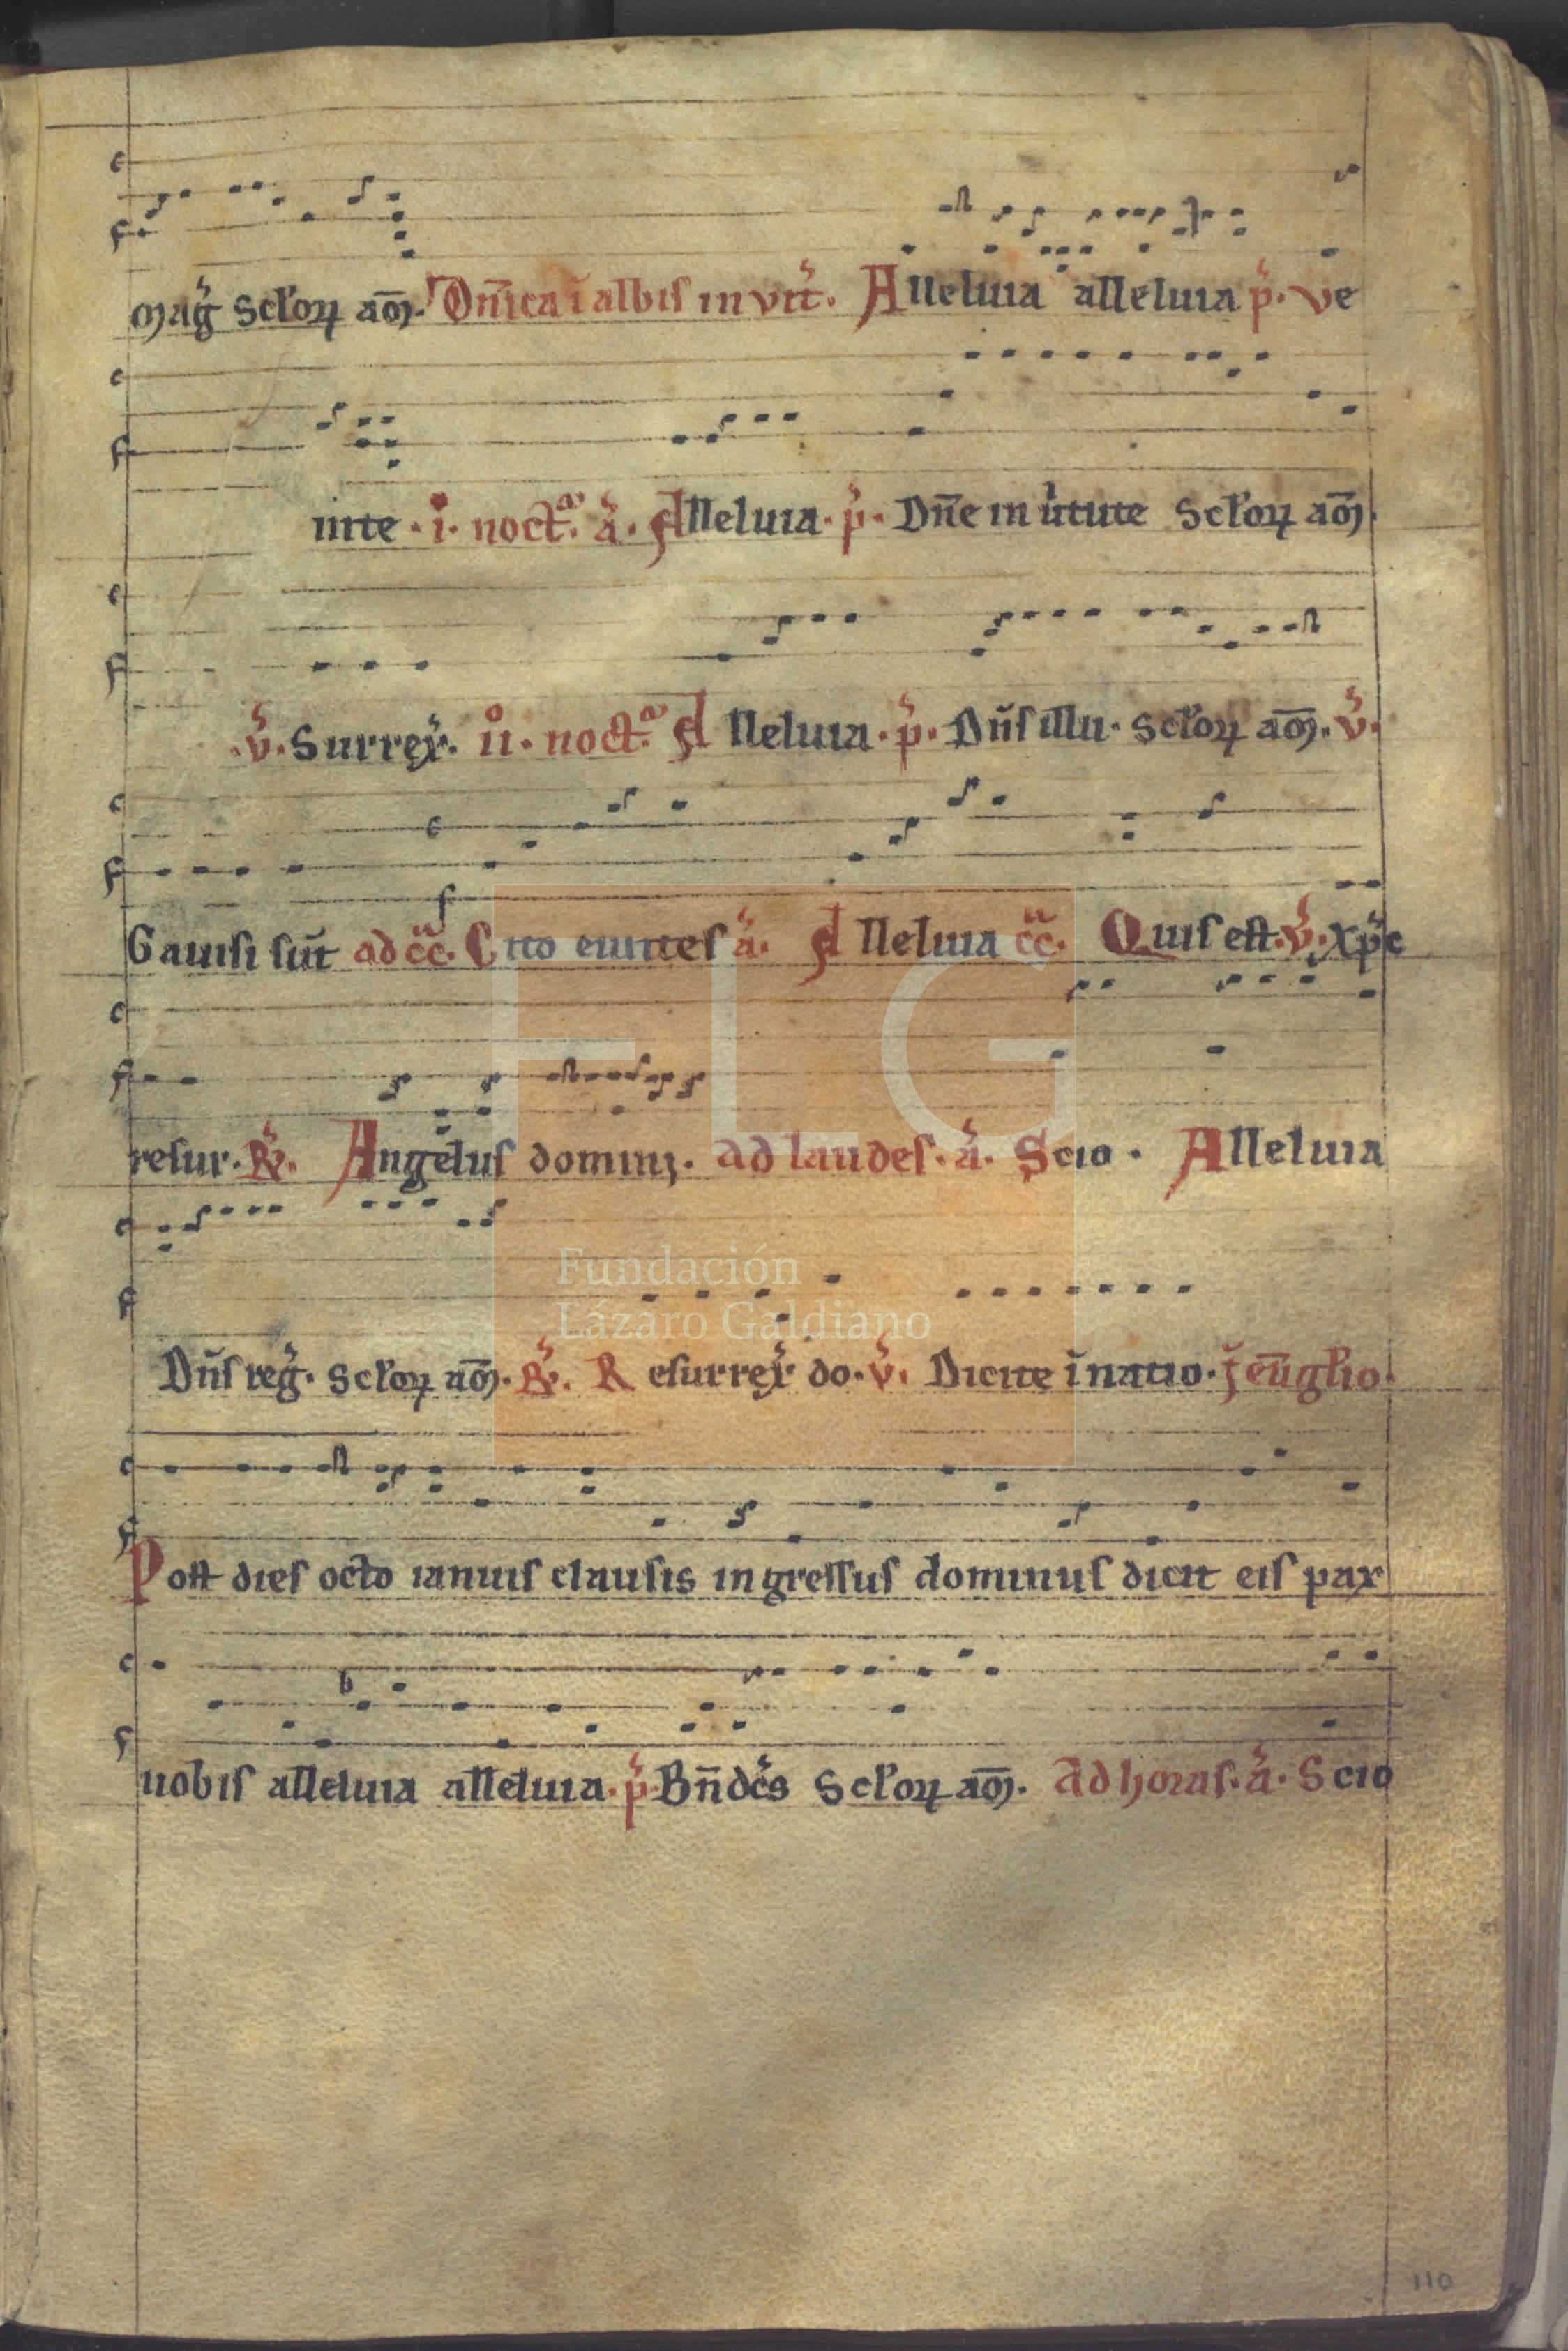 mag̃ scloꝝ am̃. Dñica ĩ albis in vit̃. Alleluia alleluia p̃. ve
nite. i. noct. ã. Alleluia. p̃. Dñe in ũtute Scloꝝ am̃.
ṽ. Surrex̃. ii. noct. Alleluia. p̃. Dñs illu. Scloꝝ am̃. ṽ.
Gauisi sũt ad cc̃. Cito euntes ã. Alleluia cc̃. Quis est. ṽ. xp̃c
resur. R̃. Angelus domini. ad laudes. ã. Scio. Alleluia
Dñs reg̃. Scloꝝ am̃. R̃. Resurrex̃ do. ṽ. Dicite ĩ natio. ĩ eũglio.
Post dies octo ianuis clausis ingressus dominus dicit eis pax
uobis alleluia alleluia. p̃. Bñdc̃s Scloꝝ am̃. Ad horas. ã. Scio
FLG
Fundación
Lázaro Galdiano
110